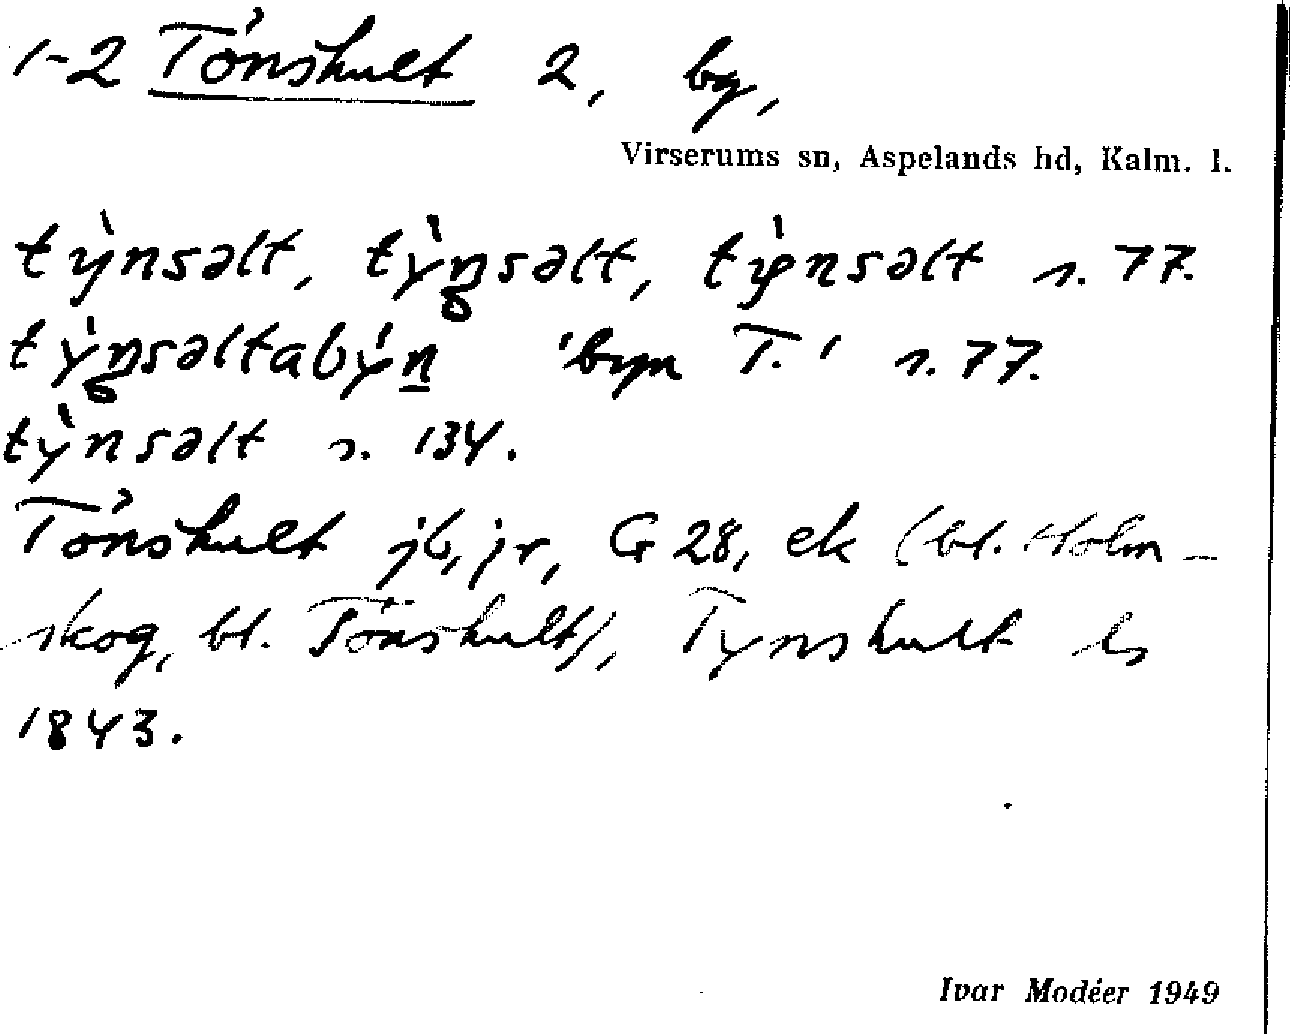 1-2 Tönshult 2, by,
Virserums sn, Aspelands hd, Kalm. l.
tỳnsəlt, tỳn̥səlt, tìpnsəlt s. 77.
tỳn̥səltabýn̲ 'byn T.' s. 77.
tỳnsəlt s. 134.
Tönshult jb, jr, G 28, ek (bl. Holm-
skog, bl. Tönshult), Tynshult ls
1843.
Ivar Modéer 1949